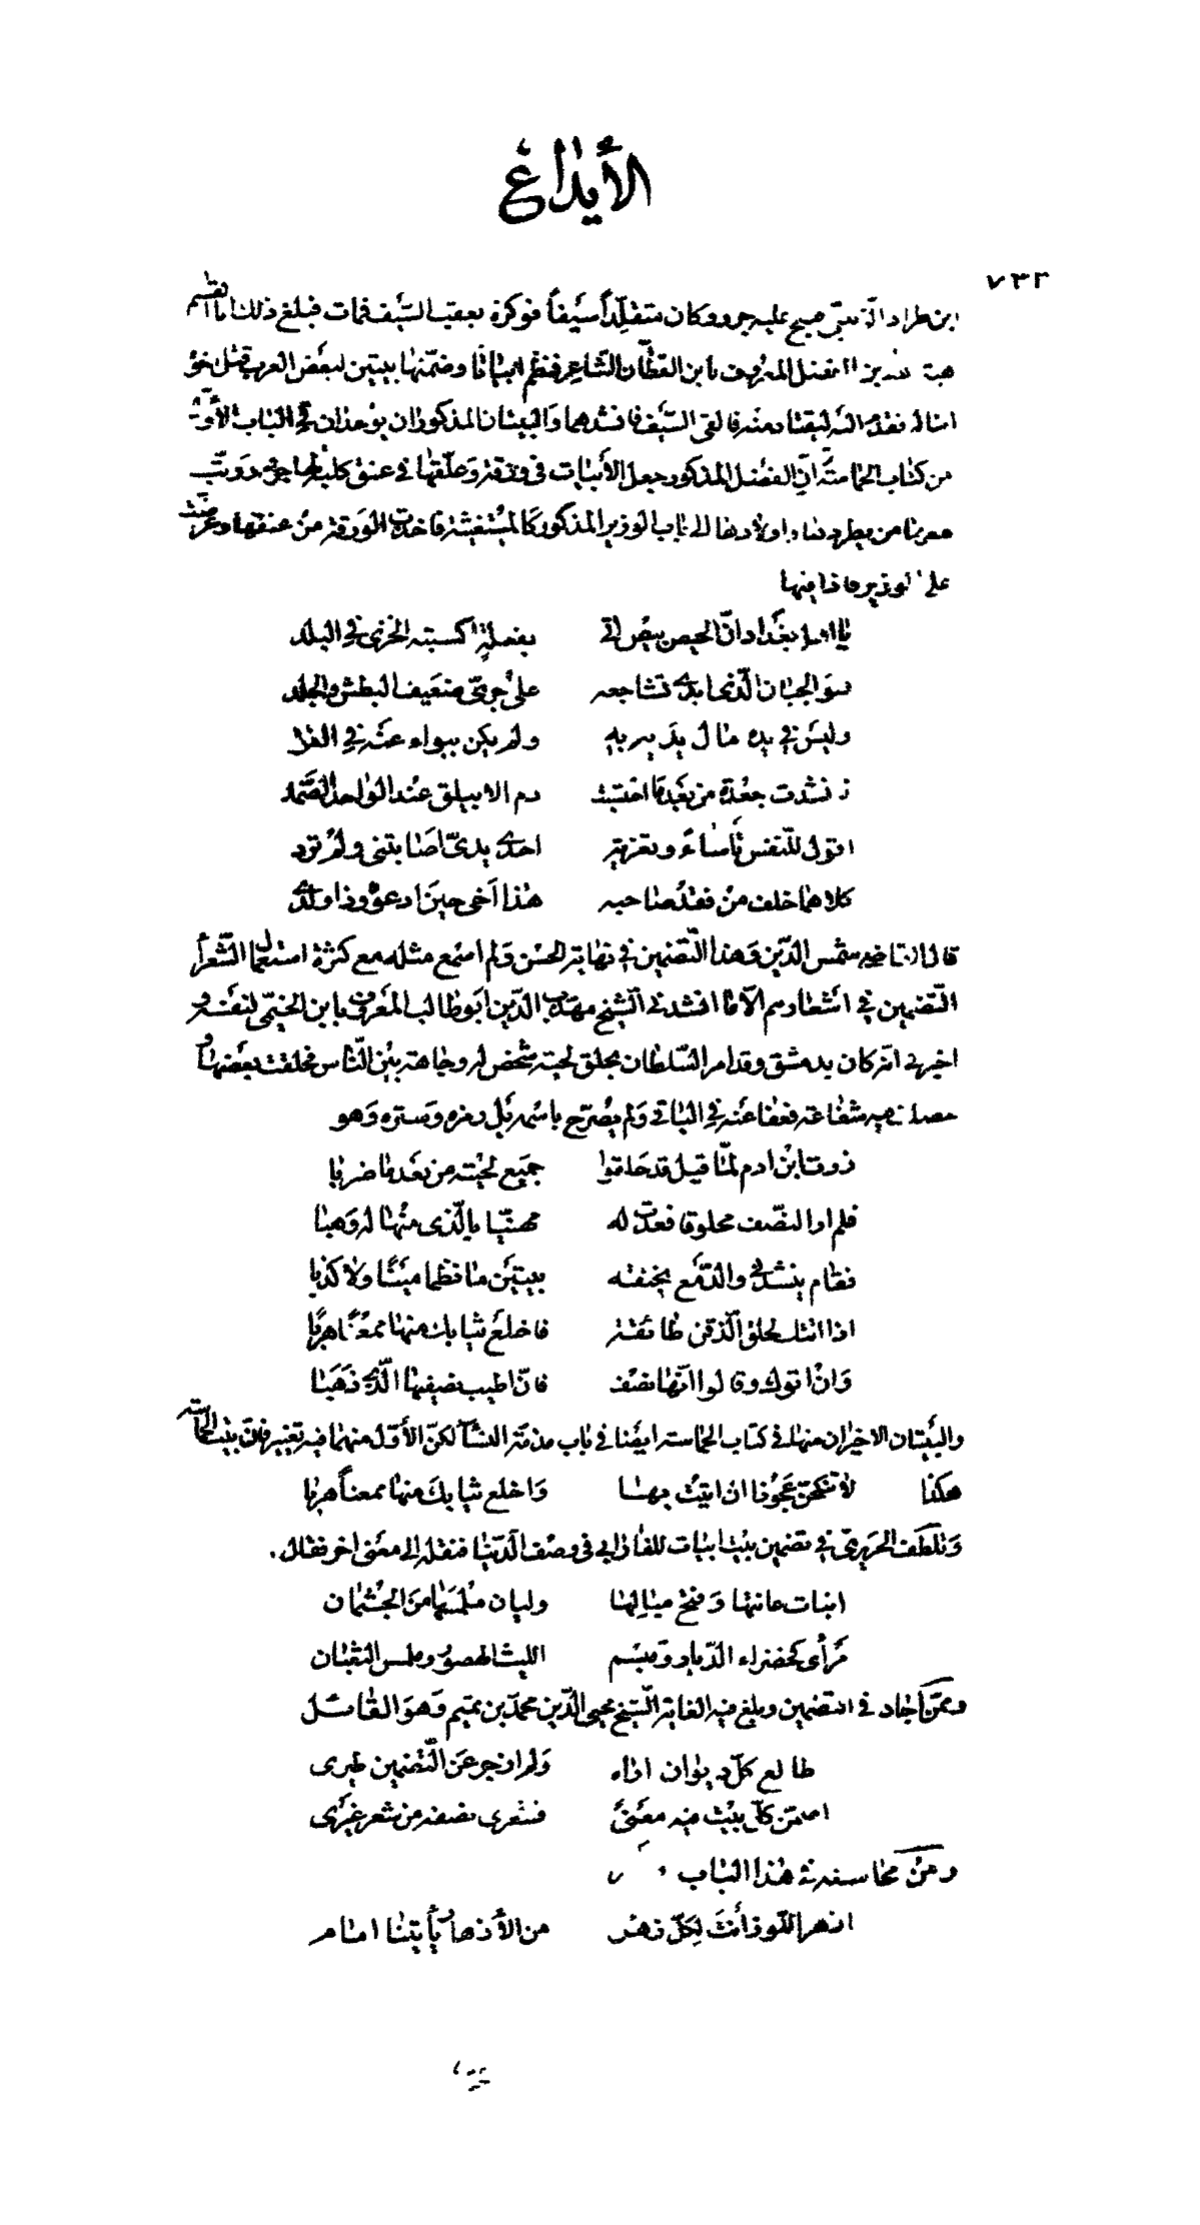 الأيداع
٧٣٢
ابن طراد الزينبى صبح عليه جرو وكان متقلّداً سَيفاً فوكزه بعقب السّيف فمات فبلغ ذلك ابا القسم
هبة الله بن الفضل المعروف بابن القطّان الشّاعر فنظم ابياتًا وضمّنها ببيتين لبعض العرب قتل اخوه
ابنا له فقدم اليه ليقتاد منه فالقى السّيف فانشدهما والبيتان المذكوران يوجدان في الباب الأوّل
من كتاب الحماسة ثم انّ الفضل المذكور جعل الأبيات فى ورقة وعلّقها في عنق كلبة لها جرو ورتّب
معها من يطردها واولادها الى باب الوزير المذكور كالمستغيثة فاخذت الورقة من عنقها وعرضت
على الوزير فاذا فيها
يا اهل بغداد انّ الحيص بيص اتى    بفعلة اكسبته الخزى في البلد
هو الجبان الّذى ابدى تشاجعه    على جرىّ ضعيف البطش والجلد
وليس في يده مال يديه به    ولم يكن ببواء عنه في القود
فانشدت جعدة من بعد ما احتسبت    دم الابيلق عند الواحد الصّمد
اقول للنّفس تأساءً وتعزية    احدى يدىّ اصابتنى ولم ترد
كلاهما خلف من فقد صاحبه    هذا اخى حين ادعوه وذا ولدى
قال القاضى شمس الدّين وهذا التّضمين في نهاية الحسن ولم اسمع مثله مع كثرة استعمال الشّعراء
التّضمين في اشعارهم الّا ما انشدنى الشّيخ مهذب الدّين ابو طالب المعروف بابن الخيمّى لنفسه و
اخبرنى انّه كان بدمشق وقد امر السّلطان بحلق لحية شخص له وجاهة بين النّاس فحلقت بعضها و
حصلت فيه شفاعة فعفا عنه في الباقى ولم يصّرح باسمه بل رمزه وستره وهو
زرت ابن ادم لمّا قيل قد حلقوا    جميع لحيته من بعد ما ضربا
فلم ار النّصف محلوقا فعدت له    مهنّيا بالّذى منها له وهبا
فقام ينشدنى والدّمع يخنقه    ببيتين ما نظما ميتًا ولا كذبا
اذا اتتك لحلق الذّقن طائفة    فاخلع ثيابك منها ممعنًا هربًا
وان اتوك وقالوا انّها نصف    فانّ اطيب نصفيها الّذى ذهبا
والبيتان الاخيران منها فى كتاب الحماسة ايضًا فى باب مذمّة النّسآء لكنّ الأوّل منهما فيه تغيير فانّ بيت الحماسة
هكذا    لا تنكحنّ عجوزا ان اتيت بها    واخلع ثيابك منها ممعنًا هربا
وتلطّف الحريرىّ في تضمين بيت ابيات للفارابى فى وصف الدّنيا فنقله الى معنى اخر فقال.
انبات عانتها وفتح مبالها    وليان ملمسها من الجثمان
مرأى كخضراء الدّيار ومبسم    الليث الهصور وملمس الثعبان
وممّن اجاد فى التضمين وبلغ فيه الغاية الشّيخ محيى الدّين محمّد بن تميم وهو القائل
طالع كلّ ديوان اراه    ولم ازجر عن التّضمين طيرى
اضمّن كلّ بيت فيه معنىً    فشعرى نصفه من شعر غيرى
ومن محاسنه في هذا الباب
ازهر اللّوز أنت لكلّ زهر    من الأزهار يأتينا امام